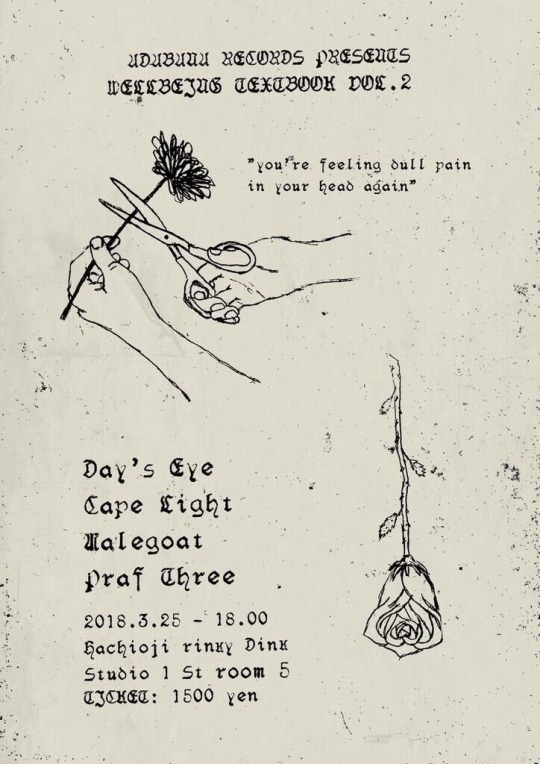 ADABANA RECORDS PRESENTS
WELLBEING TEXTBOOK VOL.2
"you're feeling dull pain
in your head again"
Day's Eye
Cape Light
Malegoat
Praf Three
2018.3.25 - 18.00
Hachioji rinky Dink
Studio 1 St room 5
TICKET: 1500 yen